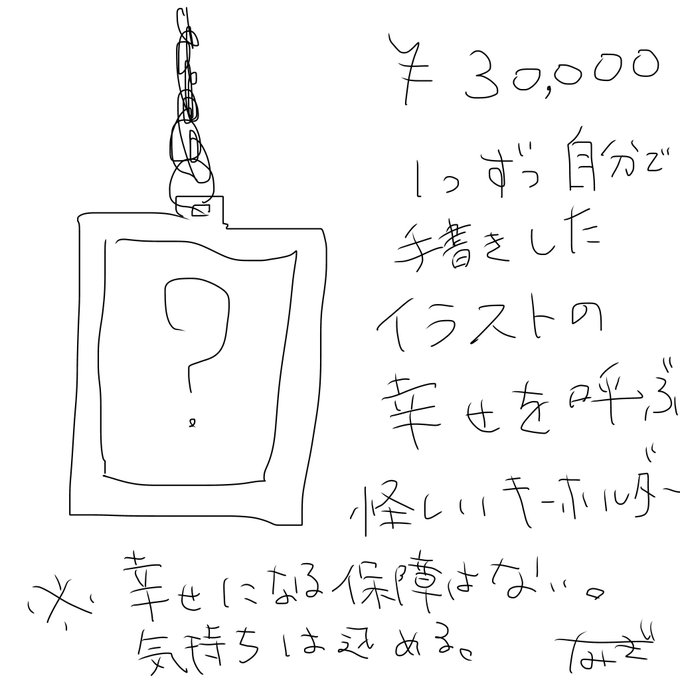 ?
¥30,000
1つずつ自分で
手書きした
イラストの
幸せを呼ぶ
怪しいキーホルダー
※幸せになる保障はない。
気持ちは込める。